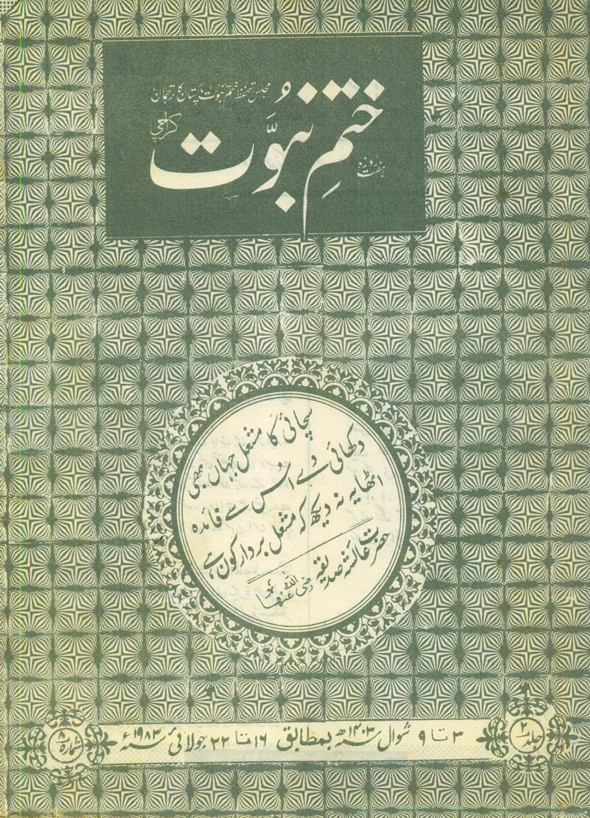 مجلس تحفظ ختم نبوت پاکستان کا ترجمان
ہفت روزہ
ختمِ نبوّت
کراچی
سچائی کا مشعل جہاں بھی
دکھائی دے اس سے فائدہ
اٹھا یہ نہ دیکھ کہ مشعل بردار کون ہے
حضرت عائشہ صدیقہ رضی اللہ عنہا
جلد ۲
۳ تا ۹ شوال سنہ ۱۴۰۳ھ بمطابق ۱۶ تا ۲۲ جولائی سنہ ۱۹۸۳ء
شمارہ ۸